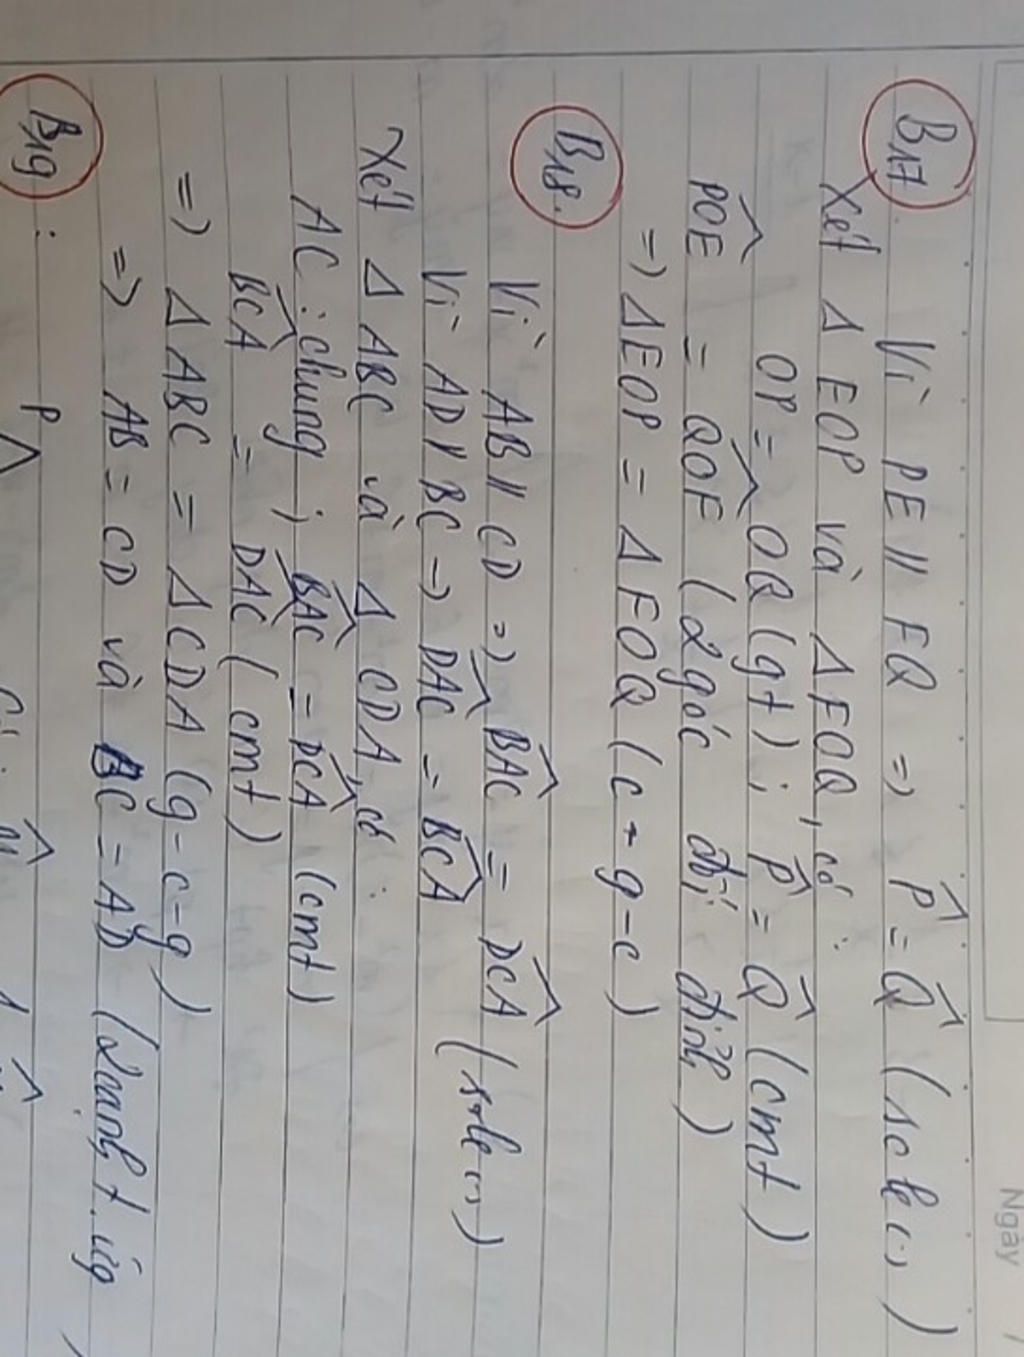 Ngày
B17. Vì PE // FQ => P̂ = Q̂ (sole...)
Xét Δ EOP và Δ FOQ, có:
OP = OQ (gt); P̂ = Q̂ (cmt)
POE = QOF (2 góc đối đỉnh)
=> ΔEOP = ΔFOQ (c-g-c)
B18. Vì AB // CD => BAC = DCA (sole...)
Vì AD // BC -> DAC = BCA
Xét Δ ABC và Δ CDA, có:
AC: chung; BAC = DCA (cmt)
BCA = DAC (cmt)
=> Δ ABC = Δ CDA (g-c-g)
=> AB = CD và BC = AD (2 cạnh t. ứg
B19:
P